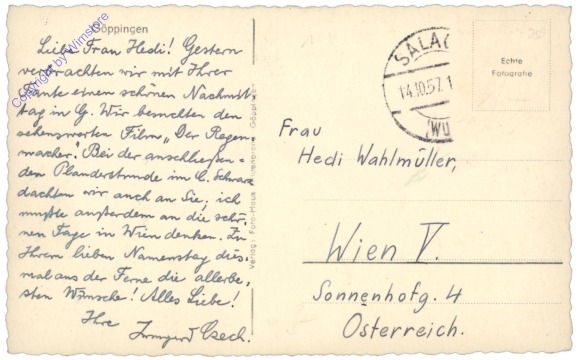 Göppingen
Liebe Frau Hedi! Gestern
verbrachten wir mit Ihrer
Tante einen schönen Nachmit-
tag in G. Wir besuchten den
sehenswerten Film "Der Regen-
macher". Bei der anschließen-
den Plauderstunde im C. Schwarz
dachten wir auch an Sie; ich
mußte außerdem an die schö-
nen Tage in Wien denken. Zu
Ihrem lieben Namenstag dies-
mal aus der Ferne die allerbe-
sten Wünsche! Alles Liebe!
Ihre
Irmgard Czech.
Copyright by Wimstore
Verlag: Foto-Haus Göppingen
SALAC
14.10.57.1
(WÜ
Echte
Fotografie
Frau
Hedi Wahlmüller,
Wien V.
Sonnenhofg. 4
Österreich.